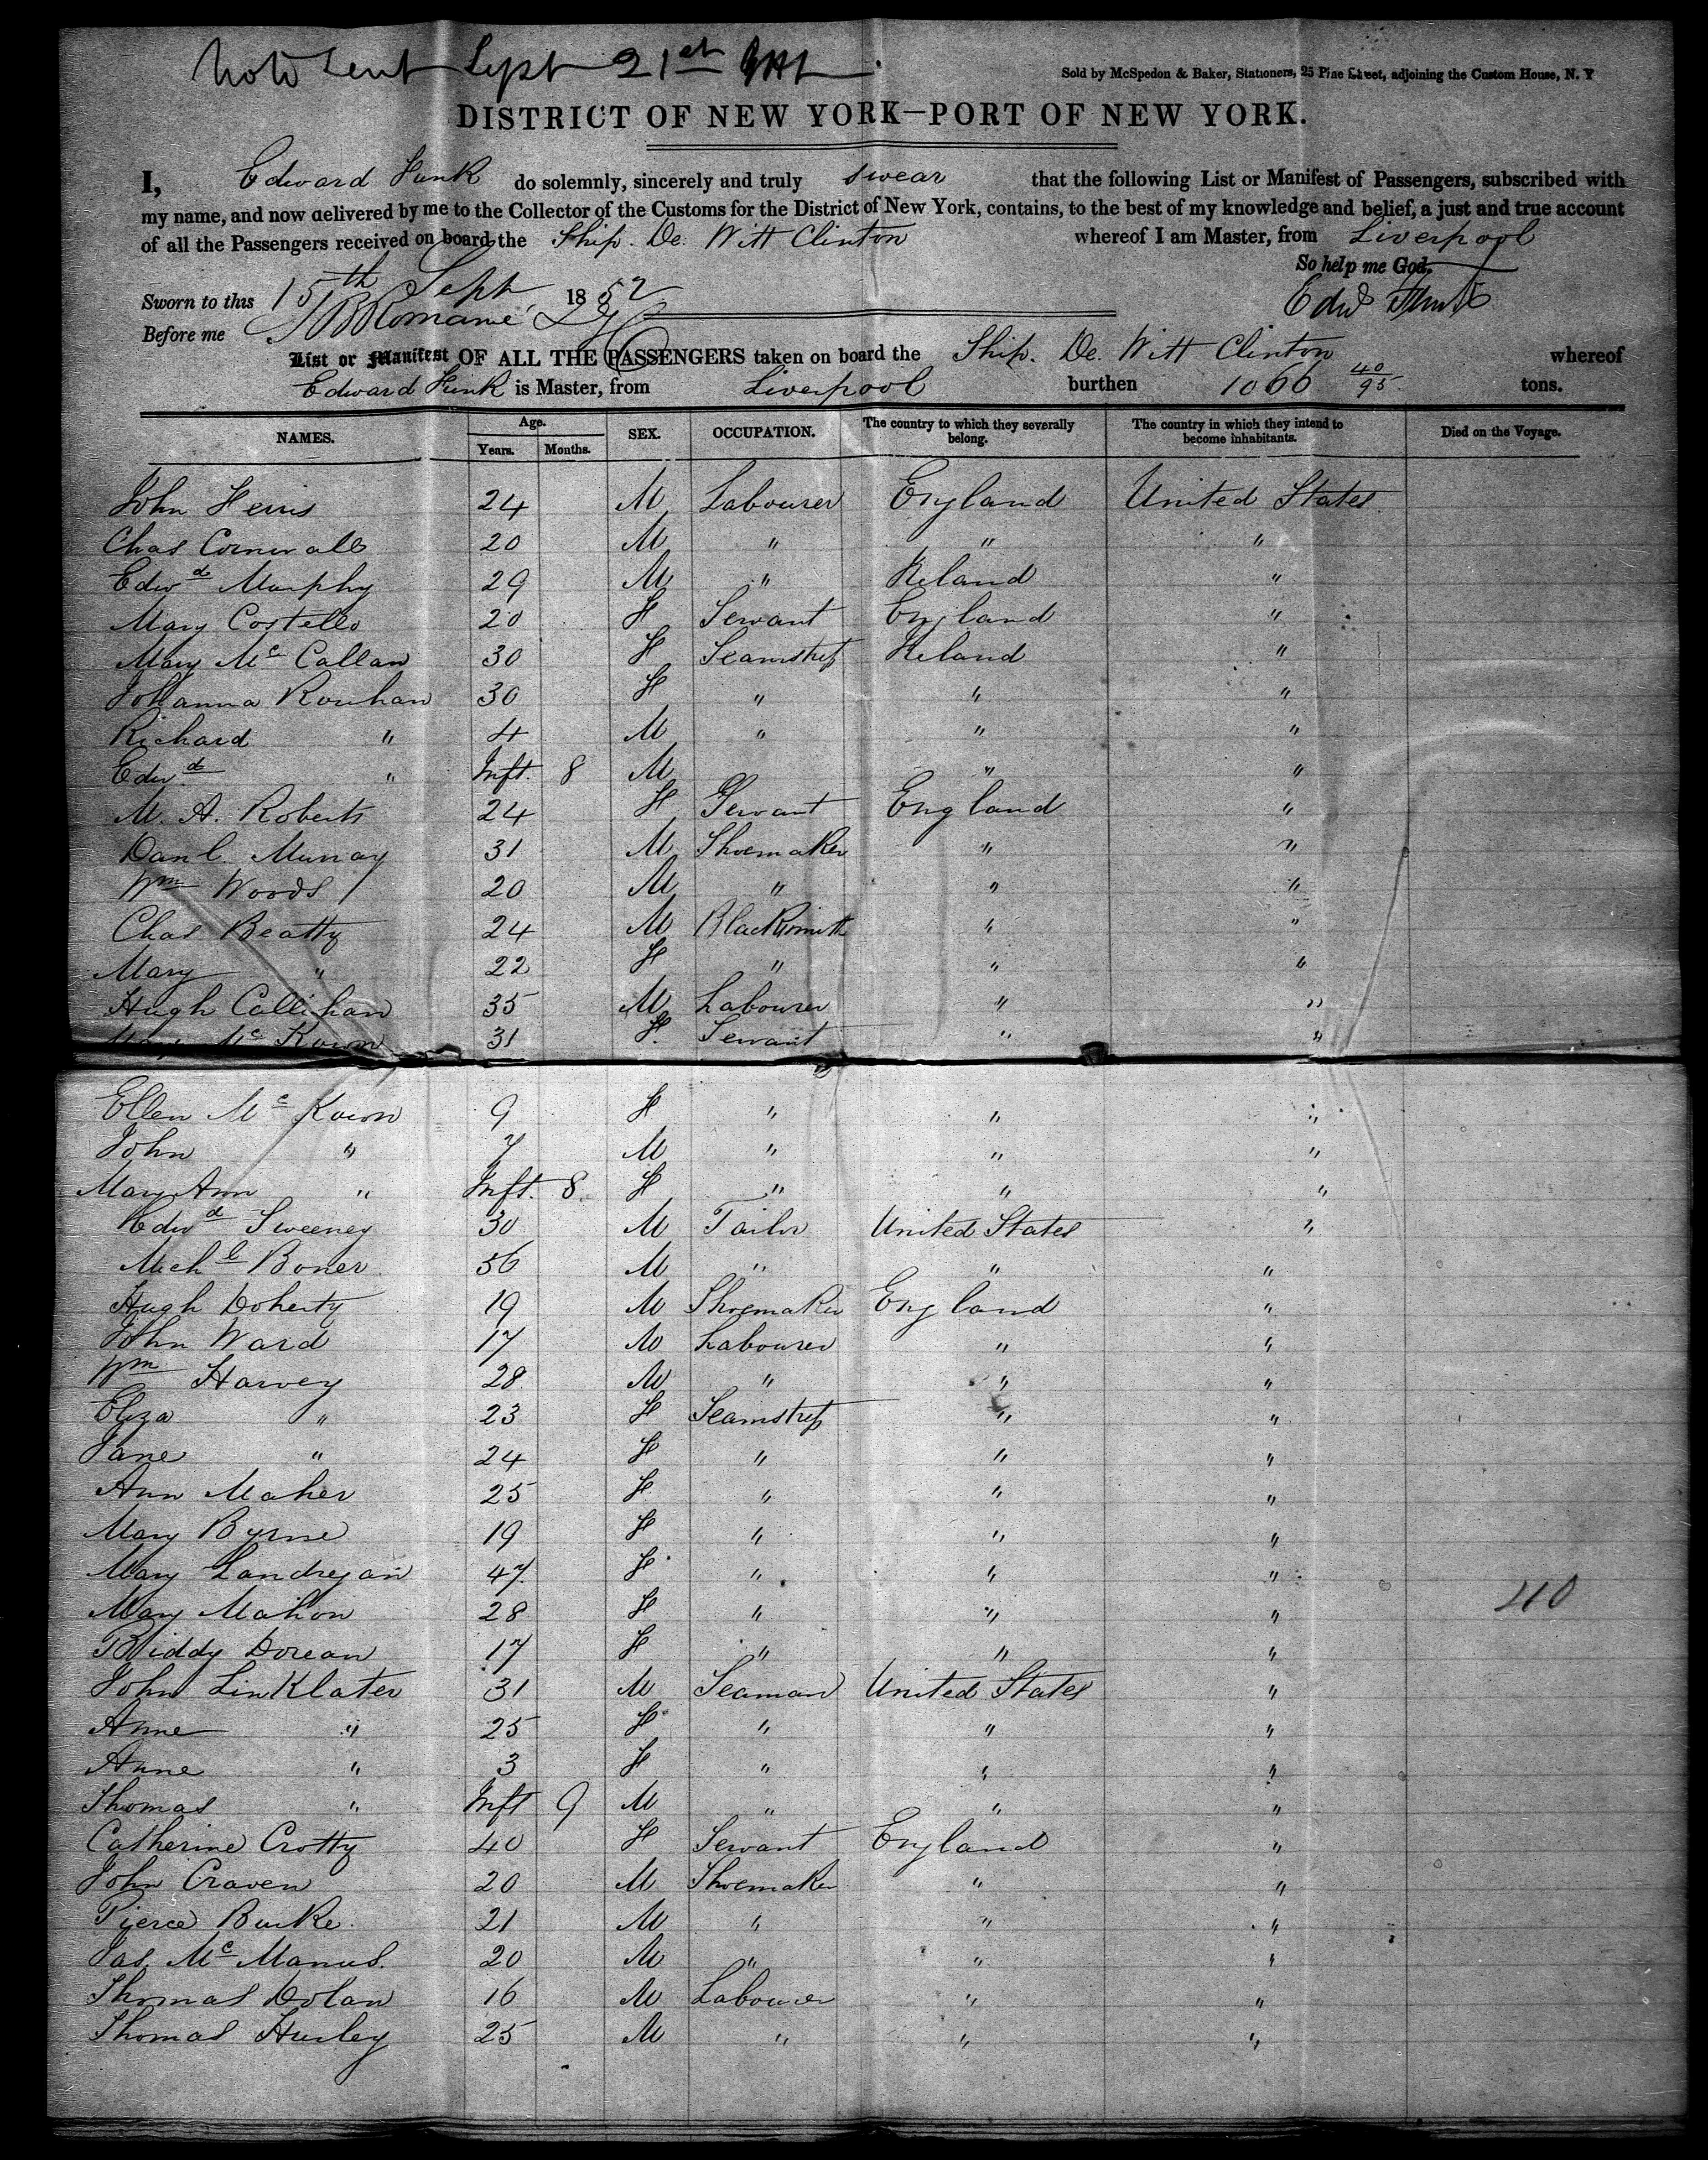 Note Sent Sept 21st
Sold by McSpedon & Baker, Stationers, 25 Pine Street, adjoining the Custom House, N. Y
DISTRICT OF NEW YORK—PORT OF NEW YORK.
I, Edward Funk do solemnly, sincerely and truly swear that the following List or Manifest of Passengers, subscribed with
my name, and now delivered by me to the Collector of the Customs for the District of New York, contains, to the best of my knowledge and belief, a just and true account
of all the Passengers received on board the Ship. De. Witt Clinton whereof I am Master, from Liverpool
So help me God.
Sworn to this 15th Sept 1852 Edwd Funk
Before me
List or Manifest OF ALL THE PASSENGERS taken on board the Ship. De. Witt Clinton whereof
Edward Funk is Master, from Liverpool burthen 1066 40/95 tons.
NAMES. Age. Years. Months. SEX. OCCUPATION. The country to which they severally belong. The country in which they intend to become inhabitants. Died on the Voyage.
John 24 M Labourer England United States
Chas Cornwall 20 M " " "
Edwd Murphy 29 M " Ireland "
Mary Costello 20 F Servant England "
Mary Mc Callan 30 F Seamstress Ireland "
Johanna Rouhan 30 F " " "
Richard " 4 M " " "
Edwd " Inft. 8 M " "
M. A. Roberts 24 F Servant England "
Danl. Murray 31 M Shoemaker " "
Wm Woods 20 M " " "
Chas Beatty 24 M Blacksmith " "
Mary " 22 F " " "
Hugh Callihan 35 M Labourer " "
Mary Mc Kown 31 F. Servant " "
Ellen Mc Kown 9 F " " "
John " 7 M " " "
Mary Ann " Inft. 8. F " " "
Edwd Sweeney 30 M Tailor United States "
Michl Boner 56 M " " "
Hugh Doherty 19 M Shoemaker England "
John Ward 17 M Labourer " "
Wm Harvey 28 M " " "
Eliza " 23 F Seamstress " "
Jane " 24 F " " "
Ann Maher 25 F " " "
Mary Byrne 19 F " " "
Mary Landregan 47 F " " "
Mary Mahon 28 F " " " 40
Biddy Dorean 17 F " " "
John Linklater 31 M Seaman United States "
Anne " 25 F " " "
Anne " 3 F " " "
Thomas " Inft 9 M " " "
Catherine Crotty 40 F Servant England "
John Craven 20 M Shoemaker " "
Pierce Burke. 21 M " " "
Jas. Mc Manus. 20 M " " "
Thomas Dolan 16 M Labourer " "
Thomas Hurley 25 M " " "